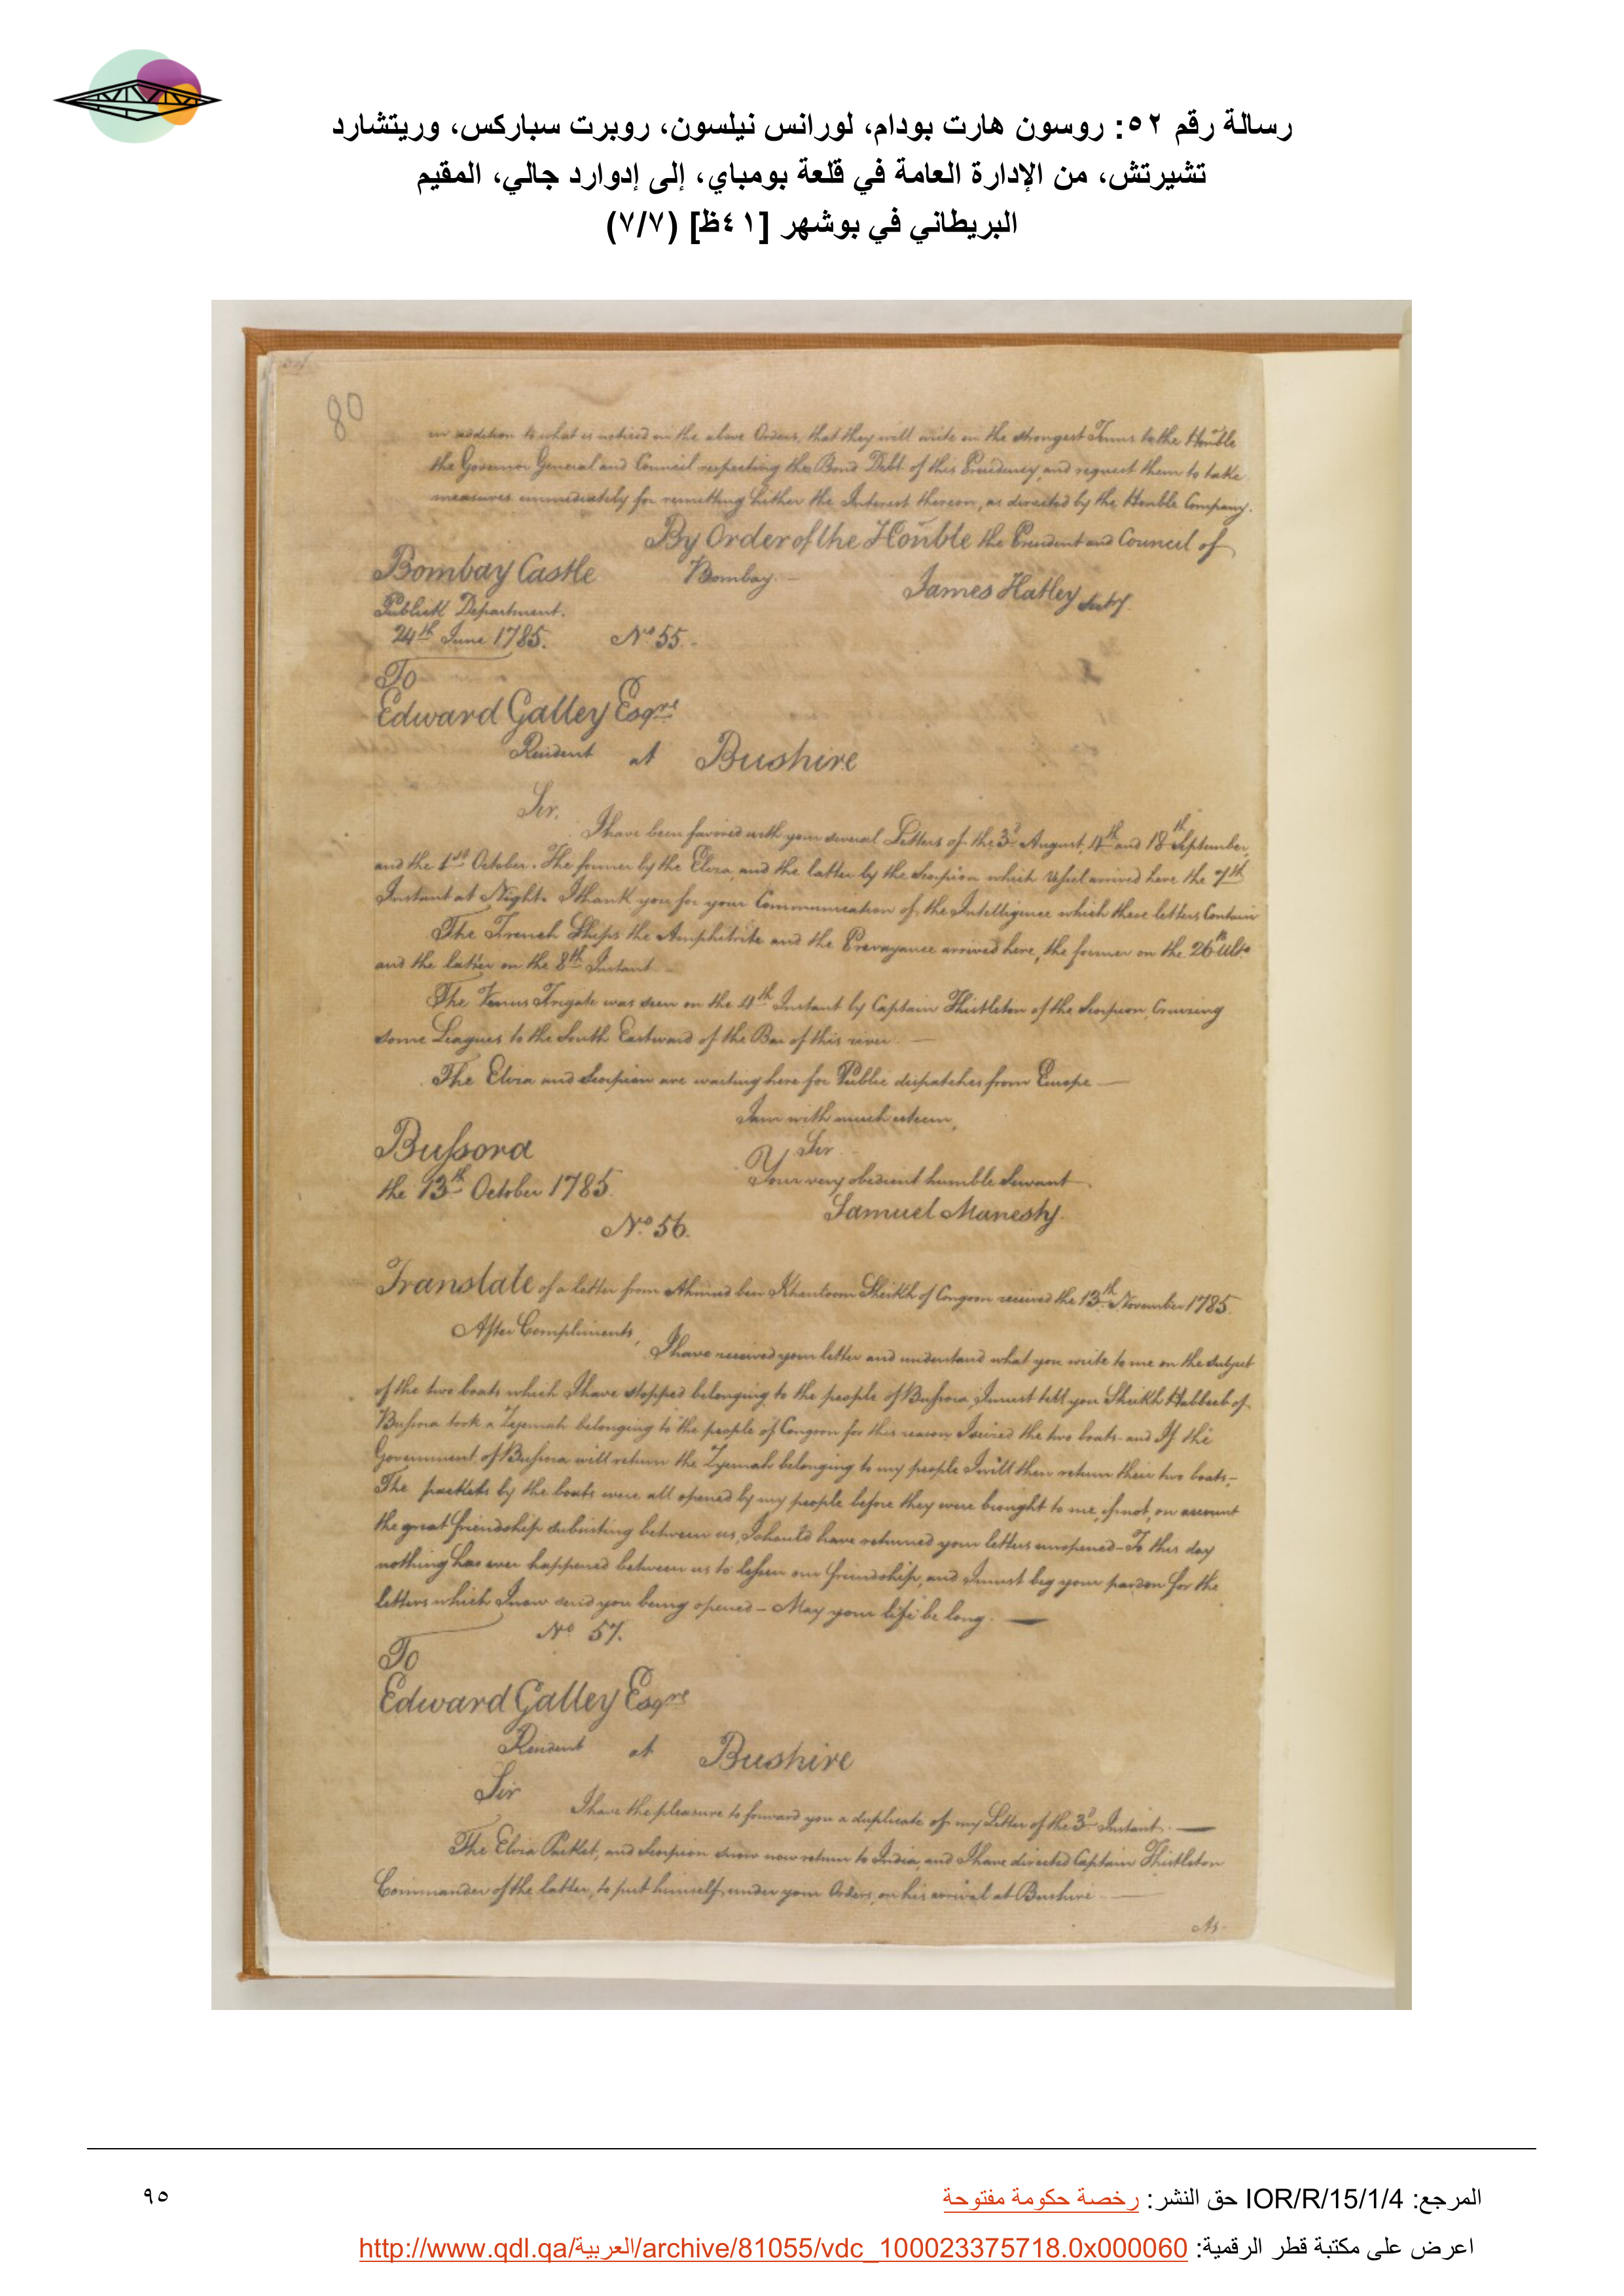 رسالة رقم ٥٢: روسون هارت بودام، لورانس نيلسون، روبرت سباركس، وريتشارد
تشيرتش، من الإدارة العامة في قلعة بومباي، إلى إدوارد جالي، المقيم
البريطاني في بوشهر [٤١ظ] (٧/٧)
80
in addition to what is noticed in the above Orders, that they will write in the strongest Terms to the Honble
the Governor General and Council respecting the Bond Debt of this Presidency, and request them to take
measures immediately for remitting hither the Interest thereon, as directed by the Honble Company.
By Order of the Honble the President and Council of
Bombay Castle Bombay. -
James Hatley Secty
Publick Department.
24th June 1785. No 55. -
To
Edward Galley Esqre
Resident at Bushire
Sir,
I have been favored with your several Letters of the 3d August, 4th and 18th September,
and the 1st October. The former by the Elvia, and the latter by the Scorpion which Vessel arrived here the 7th
Instant at Night. I thank you for your Communication of the Intelligence which these letters Contain
The French Ships the Amphitrite and the arrived here, the former on the 26th Ulto
and the latter on the 8th Instant -
The Venus Frigate was seen on the 4th Instant by Captain Thistleton of the Scorpion, Cruising
some Leagues to the South Eastward of the Bar of this river. —
The Elvia and Scorpion are waiting here for Public dispatches from Europe —
I am with much esteem,
Sir
Bussora
Your very obedient humble Servant
the 13th October 1785.
Samuel Manesty.
No 56.
Translate of a letter from Ahmed ben Sheikh of Congoon received the 13th November 1785.
After Compliments,
I have received your letter and understand what you write to me on the subject
of the two boats which I have stopped belonging to the people of Bussora, I must tell you Sheikh Habbeeb of
Bussora took a belonging to the people of Congoon for this reason I seized the two boats and If the
Government of Bussora will return the belonging to my people I will then return their two boats -
The packets by the boats were all opened by my people before they were brought to me, if not, on account
the great friendship subsisting between us, I should have returned your letters unopened - To this day
nothing has ever happened between us to lessen our friendship, and I must beg your pardon for the
letters which I now send you being opened - May your life be long. —
No 57.
To
Edward Galley Esqre
Resident at Bushire
Sir
I have the pleasure to forward you a duplicate of my Letter of the 3d Instant. —
The Elvia Packet, and Scorpion Snow now return to India, and I have directed Captain Thistleton
Commander of the latter, to put himself under your Orders, on his arrival at Bushire —
As
المرجع: IOR/R/15/1/4 حق النشر: رخصة حكومة مفتوحة
٩٥
اعرض على مكتبة قطر الرقمية: http://www.qdl.qa/العربية/archive/81055/vdc_100023375718.0x000060